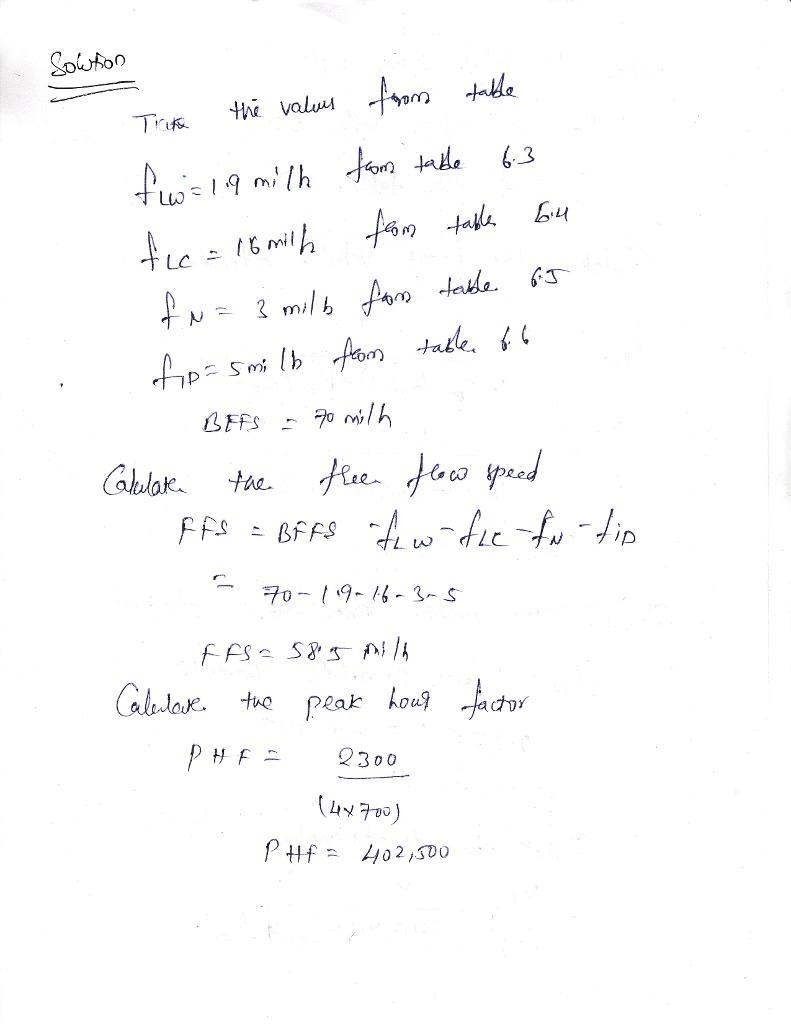 Solution
the values from table
fLW = 1.9 mi/h from table 6.3
fLC = 1.6 mi/h from table 6.4
fN = 3 mi/h from table 6.5
fID = 5 mi/h from table 6.6
BFFS = 70 mi/h
Calulate the free flow speed
FFS = BFFS - fLW - fLC - fN - fID
= 70 - 1.9 - 1.6 - 3 - 5
FFS = 58.5 mi/h
Calculate the peak hour factor
PHF = 2300
(4x700)
PHF = 402,500